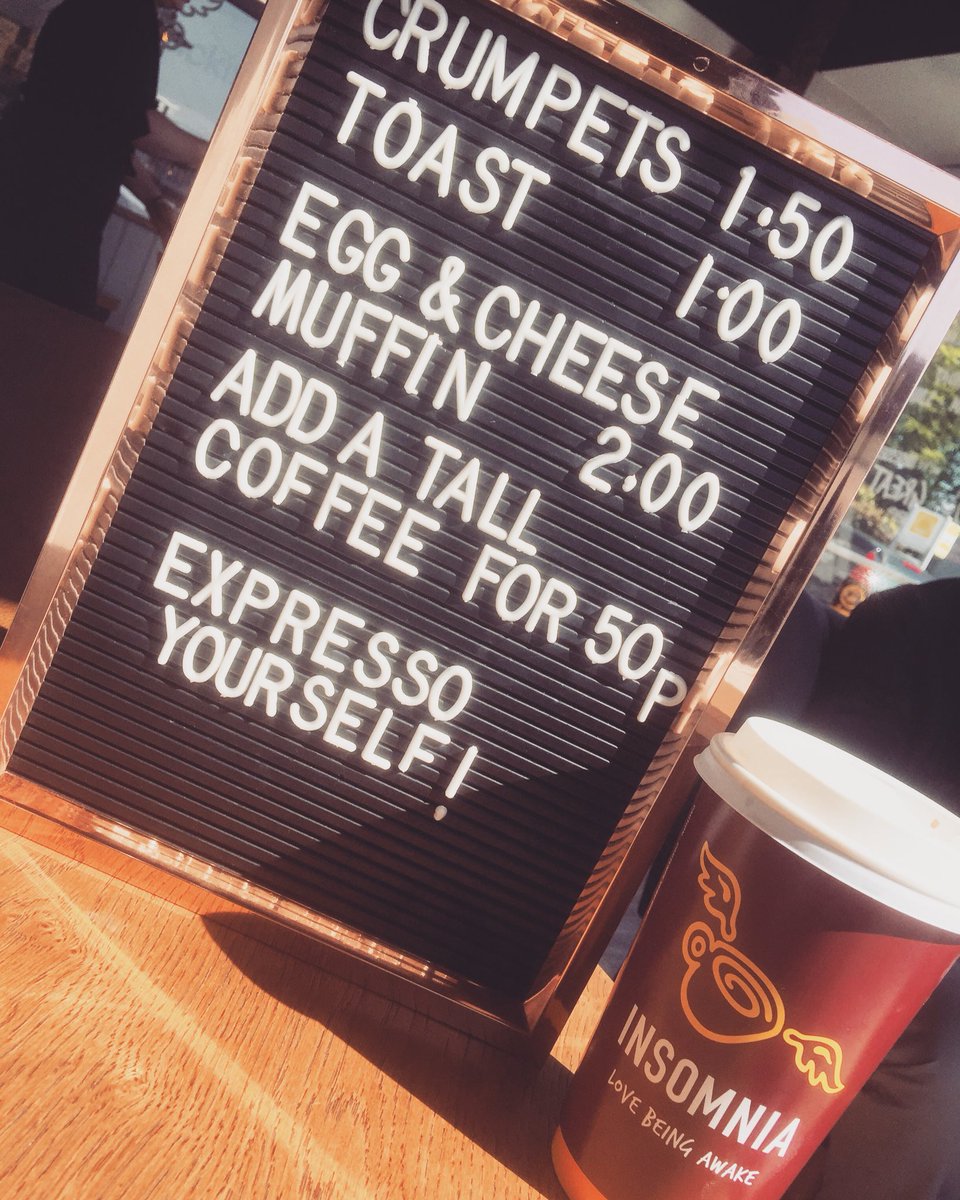 CRUMPETS 1.50
TOAST 1.00
EGG & CHEESE
MUFFIN 2.00
ADD A TALL
COFFEE FOR 50P
EXPRESSO
YOURSELF!
INSOMNIA
LOVE BEING AWAKE